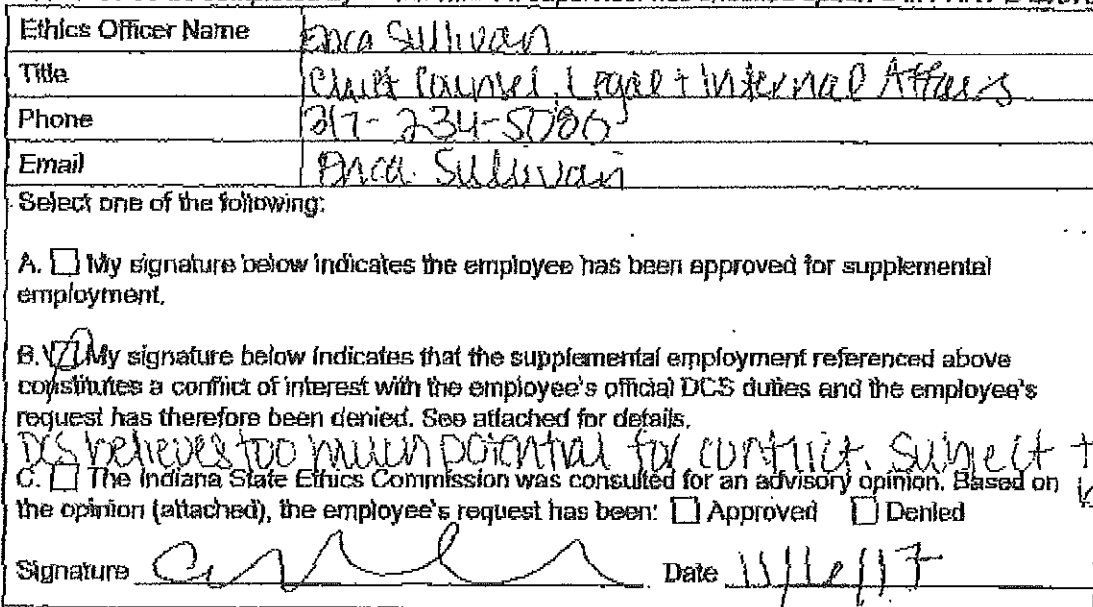 Ethics Officer Name Erica Sullivan
Title Chief Counsel, Legal + Internal Affairs
Phone 317-234-5086
Email Erica. Sullivan
Select one of the following:
A. ☐ My signature below indicates the employee has been approved for supplemental
employment.
B. ☑ My signature below indicates that the supplemental employment referenced above
constitutes a conflict of interest with the employee's official DCS duties and the employee's
request has therefore been denied. See attached for details.
DCS believes too much potential for conflict. Subject
C. ☐ The Indiana State Ethics Commission was consulted for an advisory opinion. Based on
the opinion (attached), the employee's request has been: ☐ Approved ☐ Denied
Signature Date